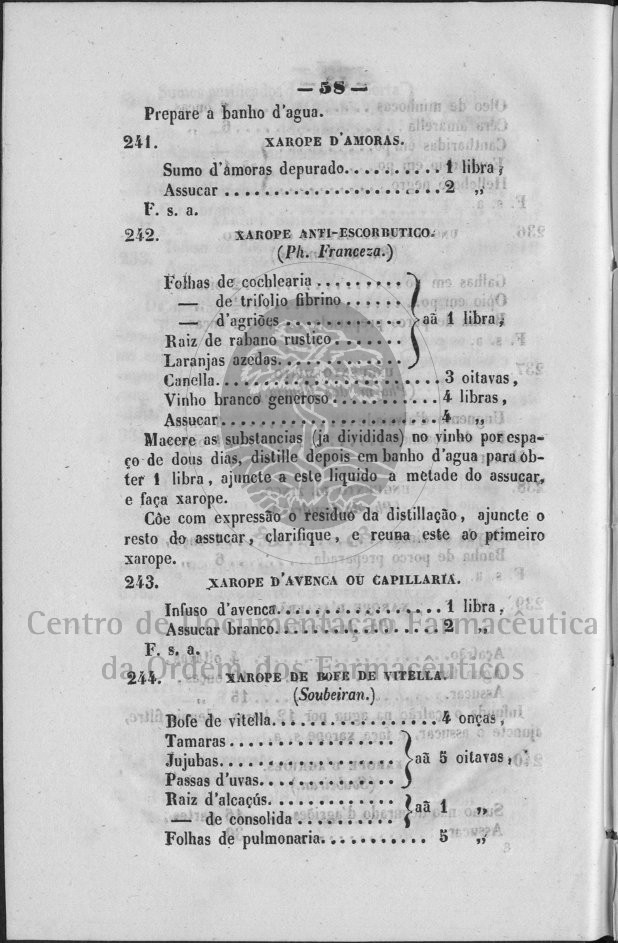 — 58 —
Prepare a banho d'agua.
241. XAROPE D'AMORAS.
Sumo d'amoras depurado.......... 1 libra,
Assucar ...................... 2 „
F. s. a.
242. XAROPE ANTI-ESCORBUTICO.
(Ph. Franceza.)
Folhas de cochlearia .........
— de trifolio fibrino ......
— d'agriões ............ aã 1 libra,
Raiz de rabano rustico.......
Laranjas azedas.............
Canella...................... 3 oitavas,
Vinho branco generoso ........... 4 libras,
Assucar...................... 4 „
Macere as substancias (ja divididas) no vinho por espa-
ço de dous dias, distille depois em banho d'agua para ob-
ter 1 libra, ajuncte a este liquido a metade do assucar,
e faça xarope.
Côe com expressão o residuo da distillação, ajuncte o
resto do assucar, clarifique, e reuna este ao primeiro
xarope.
243. XAROPE D'AVENCA OU CAPILLARIA.
Infuso d'avenca................. 1 libra,
Assucar branco.................. 2 „
F. s. a.
244. XAROPE DE BOFE DE VITELLA.
(Soubeiran.)
Bofe de vitella................. 4 onças,
Tamaras.................
Jujubas.................. aã 5 oitavas,
Passas d'uvas..............
Raiz d'alcaçús.............. aã 1 „
— de consolida ..........
Folhas de pulmonaria........... 5 „
Centro de Documentação Farmacêutica
da Ordem dos Farmacêuticos